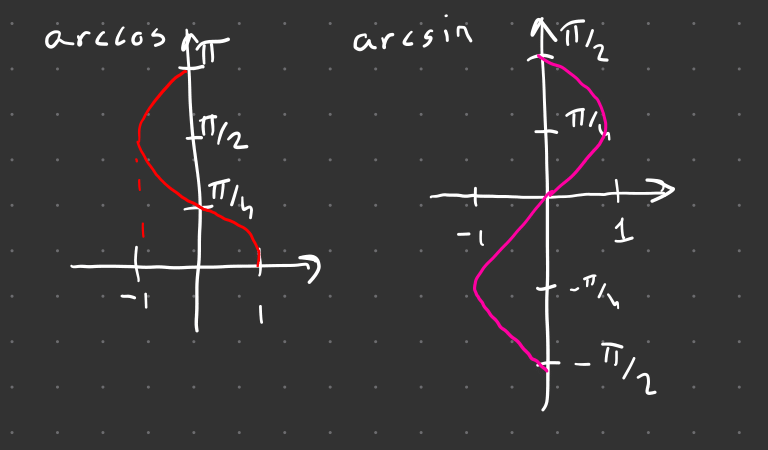 arccos
π
π/2
π/4
-1
1
arcsin
π/2
π/4
-1
1
-π/4
-π/2